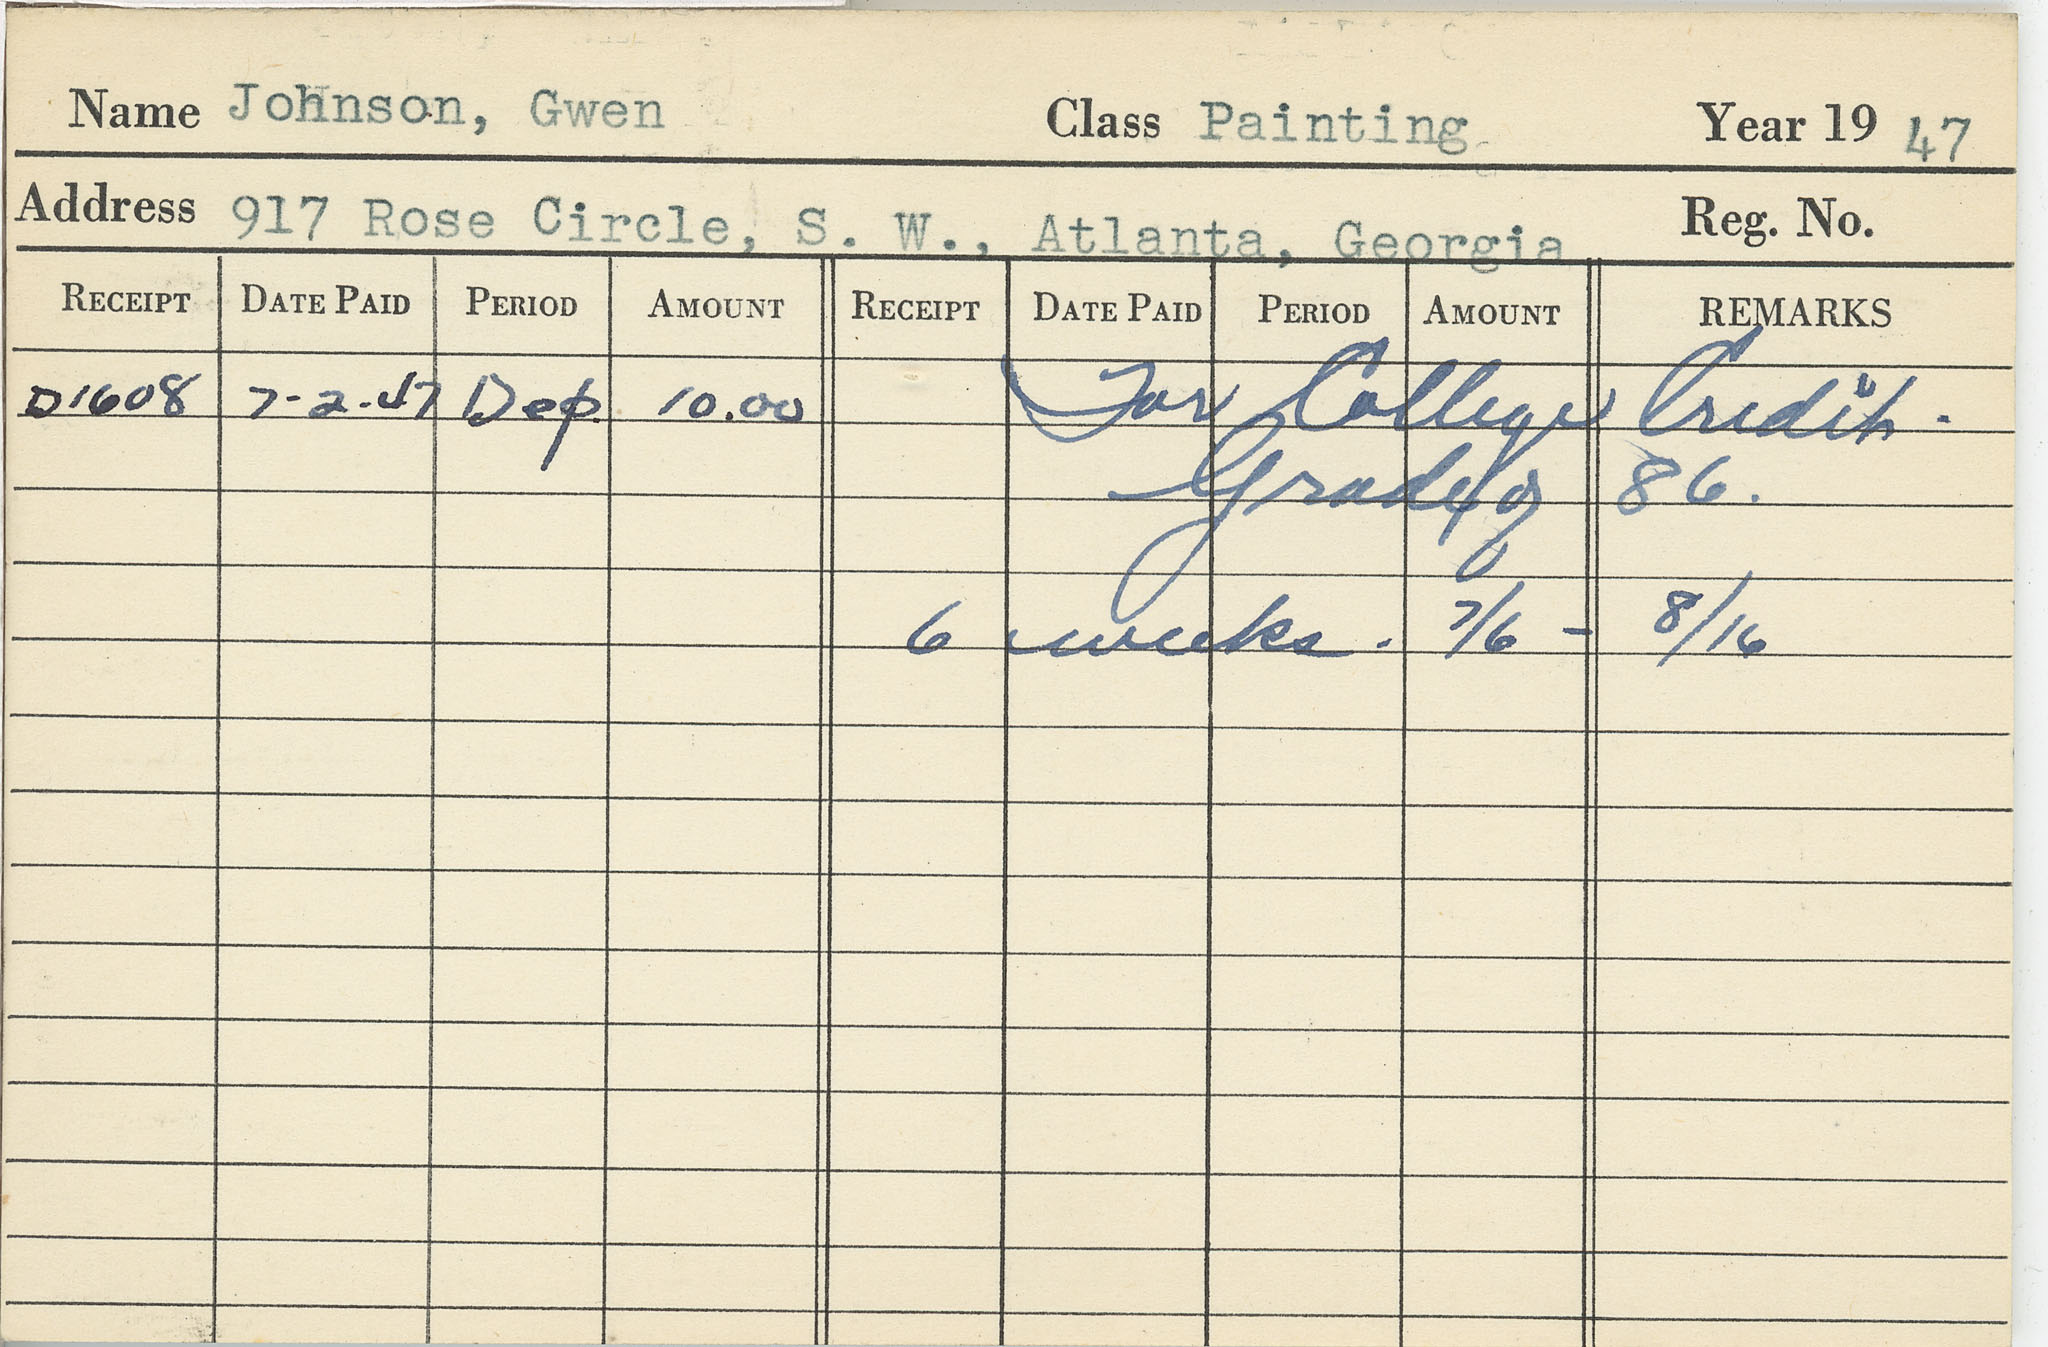 Name Johnson, Gwen Class Painting Year 19 47
Address 917 Rose Circle, S. W., Atlanta, Georgia Reg. No.
RECEIPT DATE PAID PERIOD AMOUNT RECEIPT DATE PAID PERIOD AMOUNT REMARKS
D1608 7-2-47 Dep. 10.00 For College Credit.
Grade of 86.
6 weeks. 7/6 - 8/16